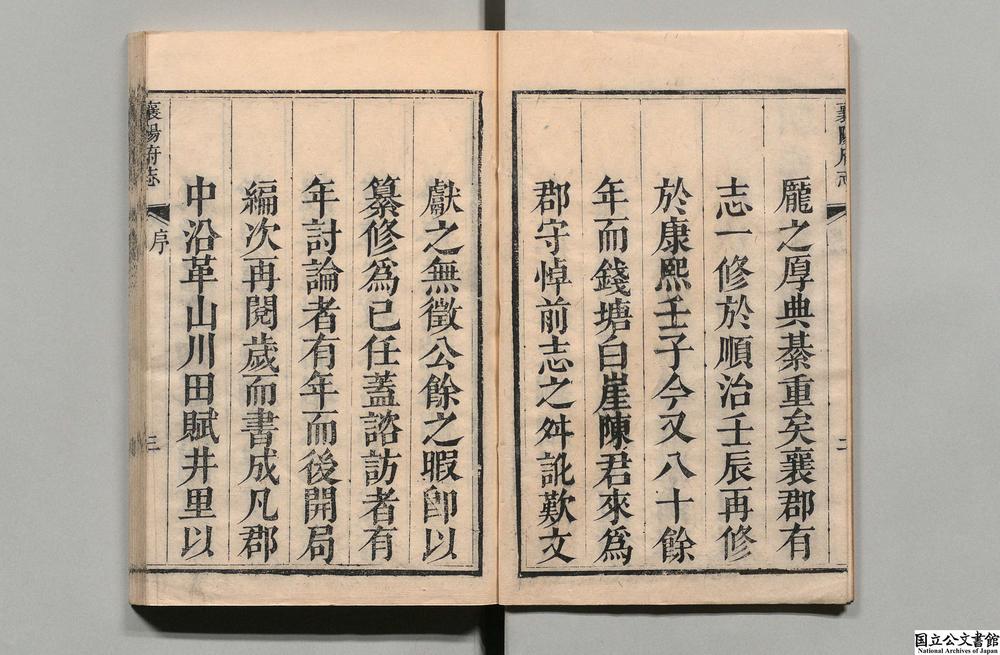 龎之厚典綦重矣襄郡有
志一修於順治壬辰再修
於康熙壬子今又八十餘
年而錢塘白崖陳君來爲
郡守悼前志之舛訛歎文
獻之無徵公餘之暇卽以
纂修爲已任蓋諮訪者有
年討論者有年而後開局
編次再閱歲而書成凡郡
中沿革山川田賦井里以
襄陽府志
二
襄陽府志
序
三
国立公文書館
National Archives of Japan